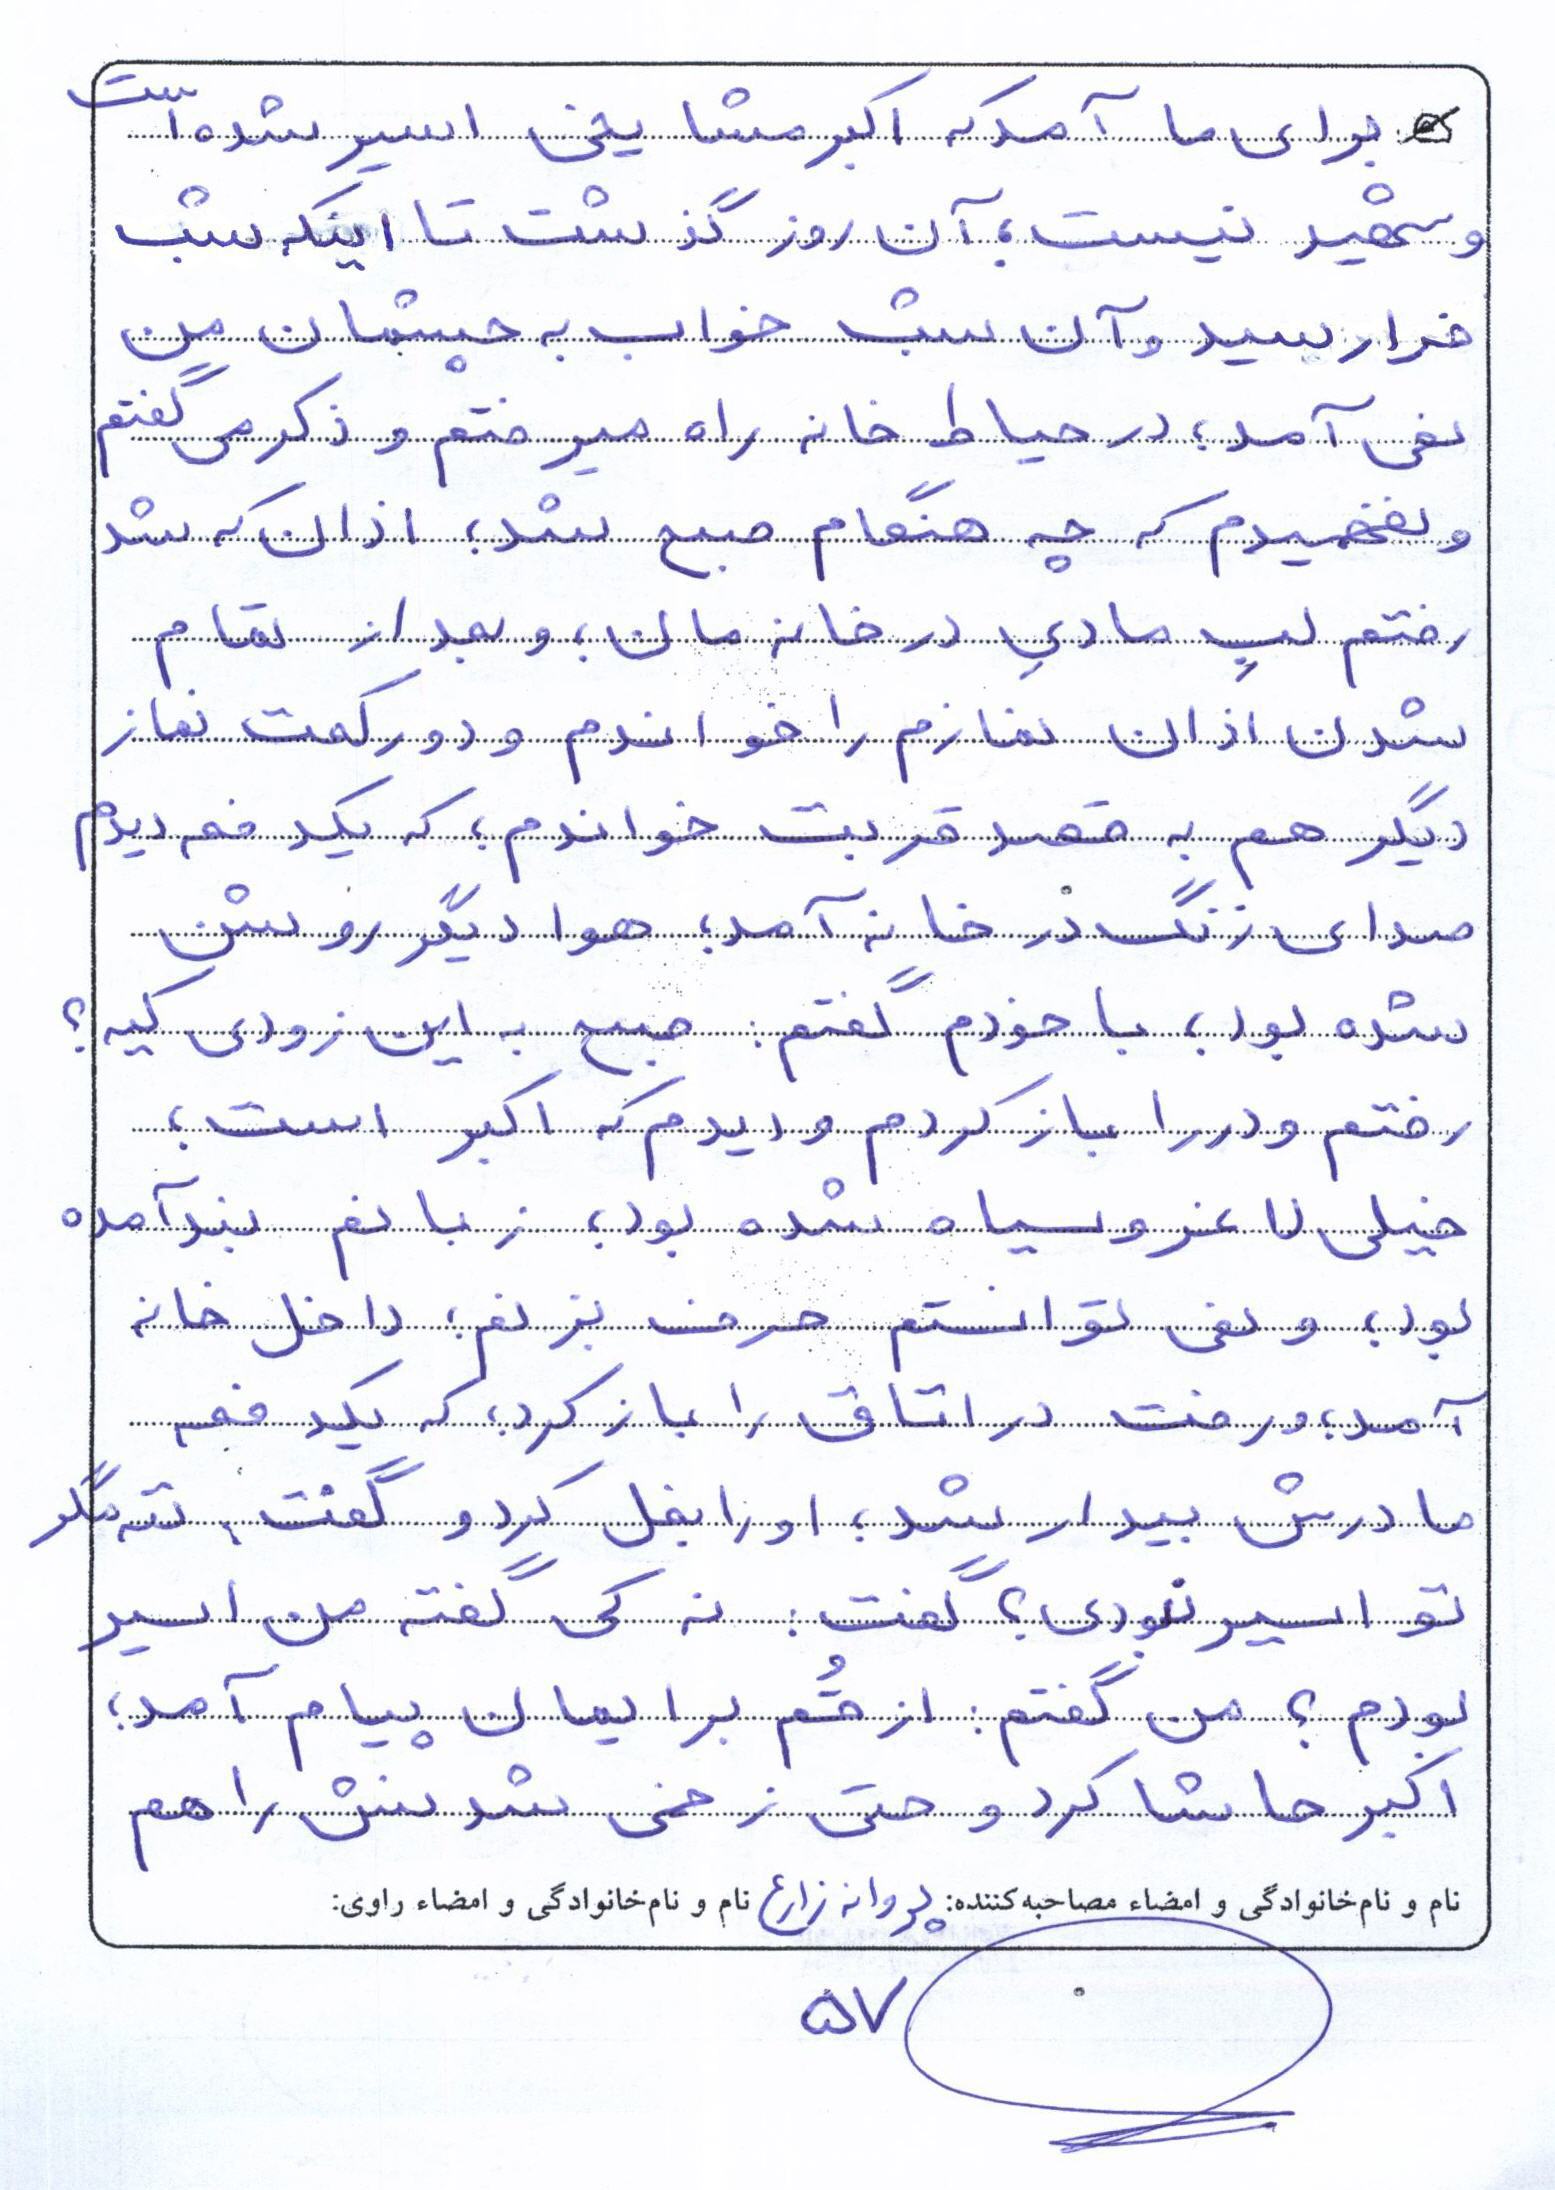 برای ما آمد که اکبر مشایخی اسیر شده است
و شهید نیست؛ آن روز گذشت تا اینکه شب
فرا رسید و آن شب خواب به چشمان من
نمی آمد؛ در حیاط خانه راه میرفتم و ذکر می گفتم
و نفهمیدم که چه هنگام صبح شد؛ اذان که شد
رفتم لبِ مادیِ در خانه مان؛ و بعد از تمام
شدن اذان نمازم را خواندم و دو رکعت نماز
دیگر هم به قصد قربت خواندم؛ که یکدفعه دیدم
صدای زنگ در خانه آمد؛ هوا دیگر روشن
شده بود؛ با خودم گفتم: صبح به این زودی کیه؟
رفتم و در را باز کردم و دیدم که اکبر است؛
خیلی لاغر و سیاه شده بود؛ زبانم بند آمده
بود؛ و نمی توانستم حرف بزنم؛ داخل خانه
آمد؛ و رفت در اتاق را باز کرد؛ که یکدفعه
مادرش بیدار شد؛ او را بغل کرد و گفت: ننه مگر
تو اسیر نبودی؟ گفت: نه کی گفته من اسیر
بودم؟ من گفتم: از قُم برایمان پیام آمد؛
اکبر حاشا کرد و حتی زخمی شدنش را هم
نام و نام‌خانوادگی و امضاء مصاحبه‌کننده: پروانه زارع نام و نام‌خانوادگی و امضاء راوی:
۵۷